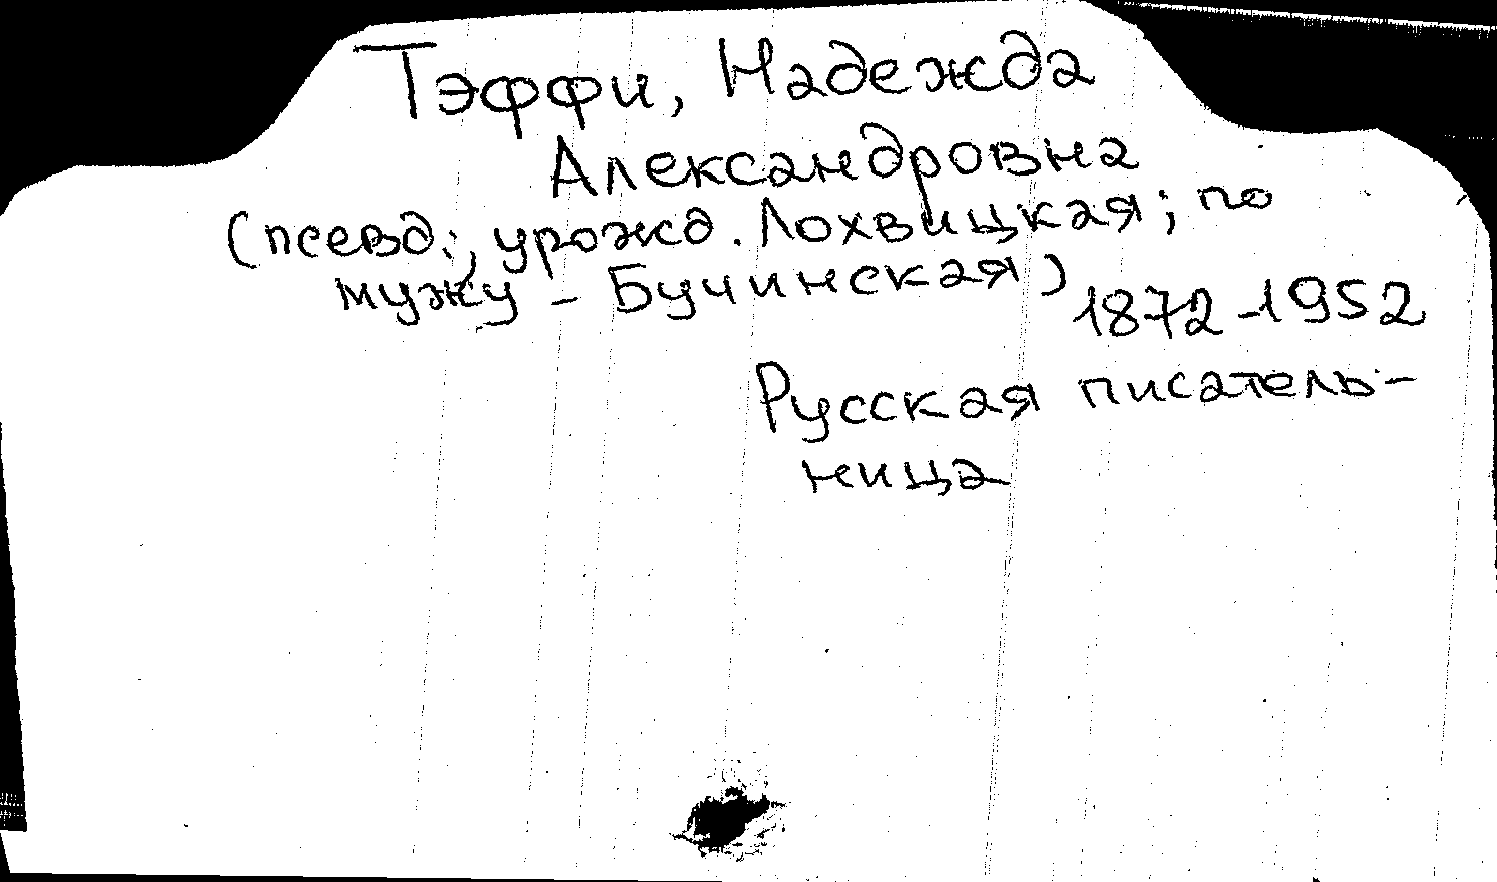 Тэффи, Надежда
Александровна
(псевд.; урожд. Лохвицкая; по
мужу - Бучинская)
1872-1952
Русская писатель-
ница